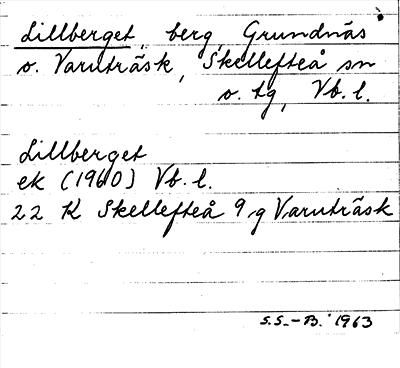 Lillberget, berg, Grundnäs
o. Varuträsk, Skellefteå sn
o. tg, Vb. l.
Lillberget
ek (1960) Vb. l.
22 K Skellefteå 9 g Varuträsk
S.S.-B. 1963